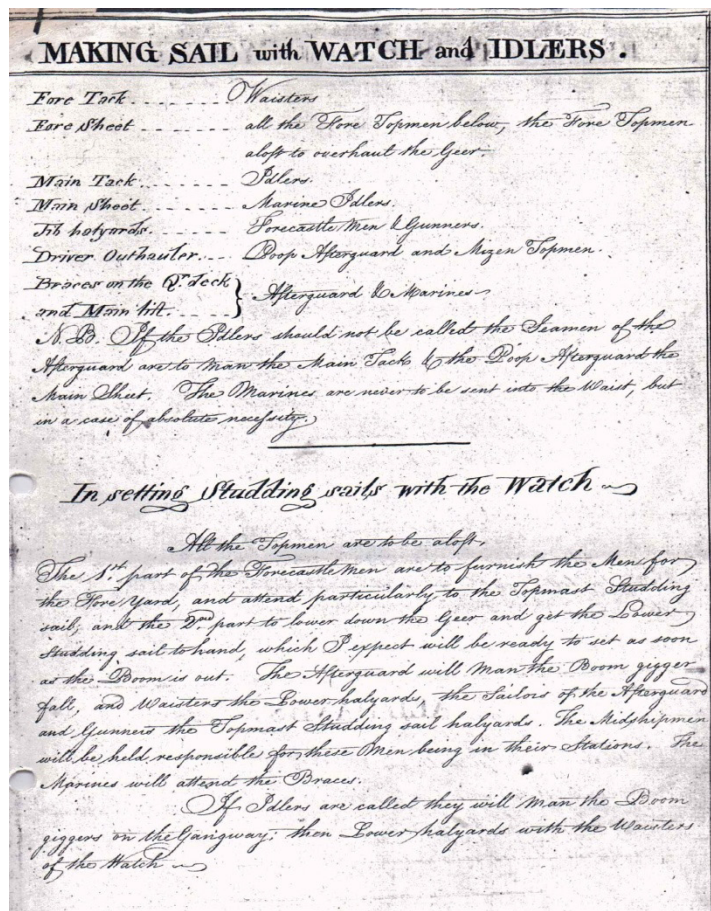 MAKING SAIL with WATCH and IDLERS.
Fore Tack........ Waisters
Fore Sheet ...... all the Fore Topmen below, the Fore Topmen
aloft to overhaul the Geer.
Main Tack........ Idlers.
Main Sheet....... Marine Idlers.
Jib halyards...... Forecastle Men & Gunners.
Driver Outhauler... Poop Afterguard and Mizen Topmen.
Braces on the Qr. deck
and Main lift..... } Afterguard & Marines
N.B. If the Idlers should not be called the Seamen of the
Afterguard are to man the Main Tack & the Poop Afterguard the
Main Sheet. The Marines are never to be sent into the Waist, but
in a case of absolute necessity.
In setting Studding sails with the Watch
All the Topmen are to be aloft.
The 1st. part of the Forecastle Men are to furnish the Men for
the Fore Yard, and attend particularly to the Topmast Studding
sail, and the 2nd part to lower down the Geer and get the Lower
Studding sail to hand, which I expect will be ready to set as soon
as the Boom is out. The Afterguard will Man the Boom gigger
fall, and Waisters the Lower halyards, the Sailors of the Afterguard
and Gunners the Topmast Studding sail halyards. The Midshipmen
will be held responsible for these Men being in their Stations. The
Marines will attend the Braces.
If Idlers are called they will Man the Boom
giggers on the Gangway; then Lower halyards with the Waisters
of the Watch